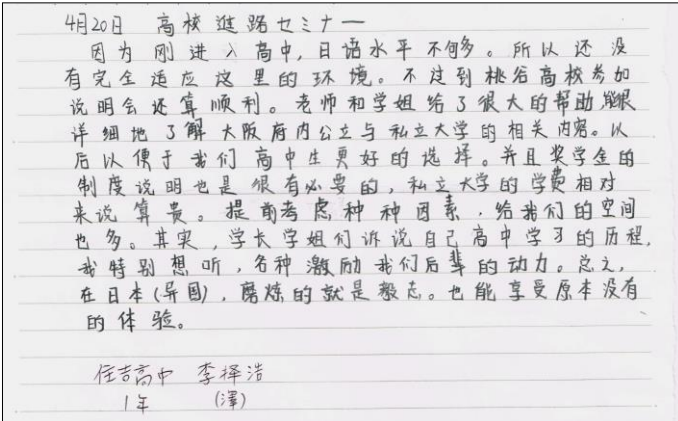 4月20日 高校進路セミナー
因为刚进入高中,日语水平不够多。所以还没
有完全适应这里的环境。不过到桃谷高校参加
说明会还算顺利。老师和学姐给了很大的帮助,能很
详细地了解大阪府内公立与私立大学的相关内容。以
后以便于我们高中生更好的选择。并且奖学金的
制度说明也是很有必要的,私立大学的学费相对
来说算贵。提前考虑种种因素,给我们的空间
也多。其实,学长学姐们诉说自己高中学习的历程,
我特别想听,各种激励我们后辈的动力。总之,
在日本(异国),磨炼的就是毅志。也能享受原本没有
的体验。
住吉高中 李择浩
1年 (澤)